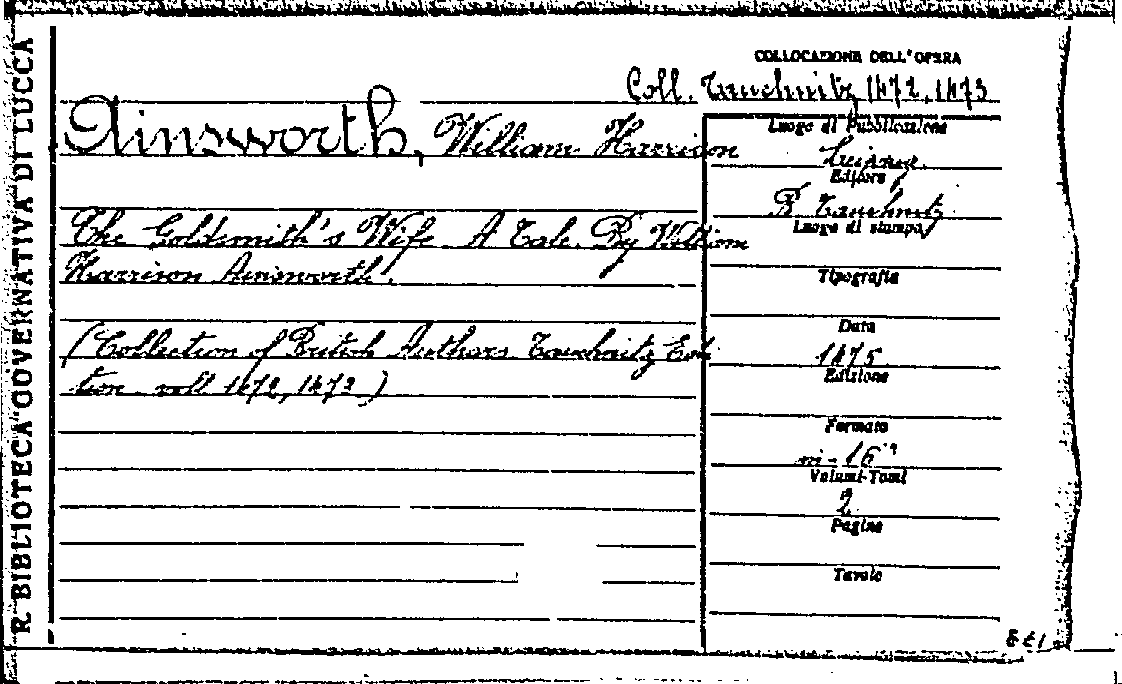 R. BIBLIOTECA GOVERNATIVA DI LUCCA
COLLOCAZIONE DELL'OPERA
Coll. Tauchnitz 1472, 1473
Ainsworth, William Harrison
The Goldsmith's Wife. A Tale. By William
Harrison Ainsworth.
(Collection of British Authors Tauchnitz Edi-
tion voll. 1472, 1473)
Luogo di Pubblicazione
Leipzig.
Editore
B. Tauchnitz
Luogo di stampa
Tipografia
Data
1875
Edizione
Formato
in-16°
Volumi-Tomi
2
Pagine
Tavole